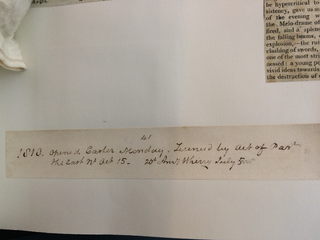 be hypocritical to
sistency, gave us m
of the evening w
the. Melo-drame of
fired, and a splen
the falling beams,
explosion,—the rat
clashing of swords,
one of the most stri
nessed: a young pe
vivid ideas towards
the destruction of
41
1813. opened Easter Monday. Licenced by act of Par
the last Nt Oct 15. 20 Wherry July 5